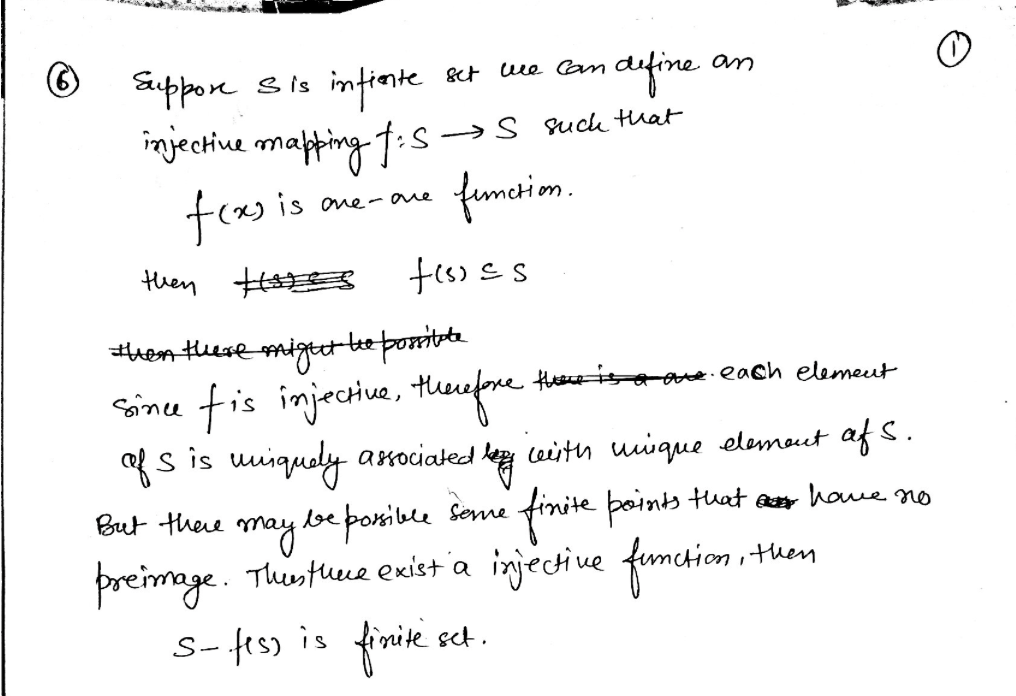 ⑥ Suppose S is infinite set we can define an ①
injective mapping f: S → S such that
f(x) is one-one function.
then f(s) ⊆ S f(s) ⊆ S
then there might be possible
Since f is injective, therefore there is a one each element
of S is uniquely associated by with unique element of S.
But there may be possible some finite points that have no
preimage. Thus there exist a injective function, then
S - f(S) is finite set.